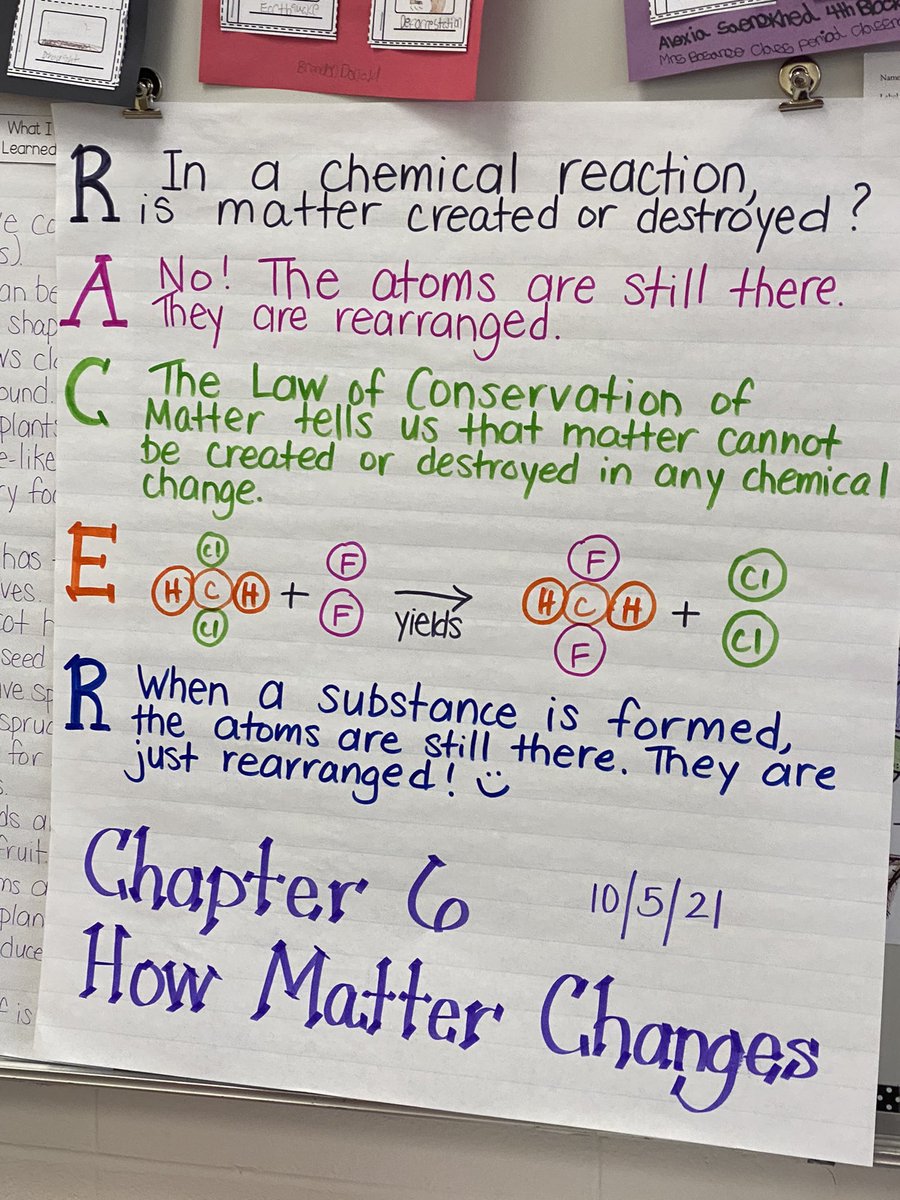 Earthquake
Deforestation
Alexia Saenokhed 4th Block
Class period. Classer
Name
What I
Learned
R In a chemical reaction,
is matter created or destroyed?
A No! The atoms are still there.
They are rearranged.
C The Law of Conservation of
Matter tells us that matter cannot
be created or destroyed in any chemical
change.
E Cl
H C H
Cl
+
F
F
yields
F
H C H
F
+
Cl
Cl
R When a substance is formed,
the atoms are still there. They are
just rearranged!
Chapter 6
10/5/21
How Matter Changes
an be
shap
ound.
plant
e-like
has
ves.
seed
spruc
for
fruit
plan
duce
is